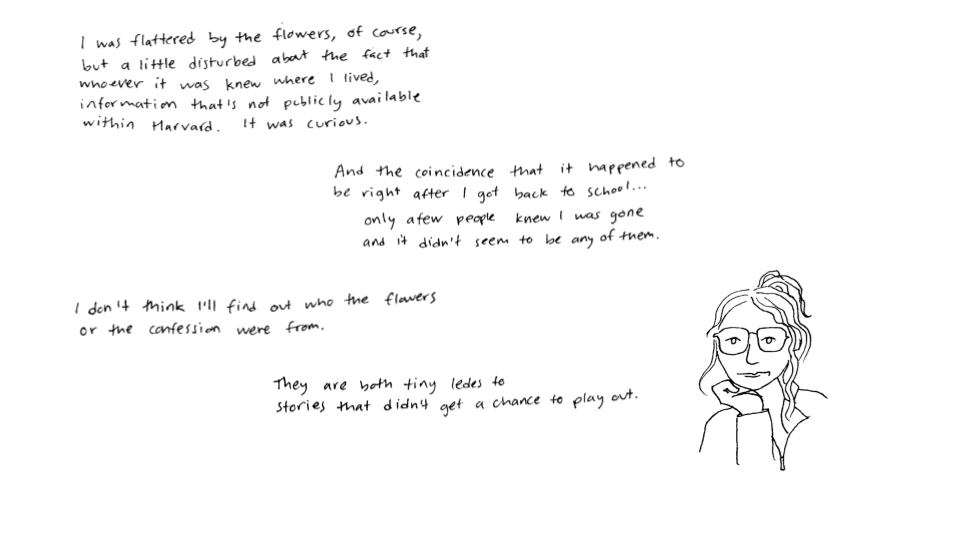 I was flattered by the flowers, of course,
but a little disturbed about the fact that
whoever it was knew where I lived,
information that's not publicly available
within Harvard. It was curious.
And the coincidence that it happened to
be right after I got back to school...
only a few people knew I was gone
and it didn't seem to be any of them.
I don't think I'll find out who the flowers
or the confession were from.
They are both tiny ledes to
stories that didn't get a chance to play out.